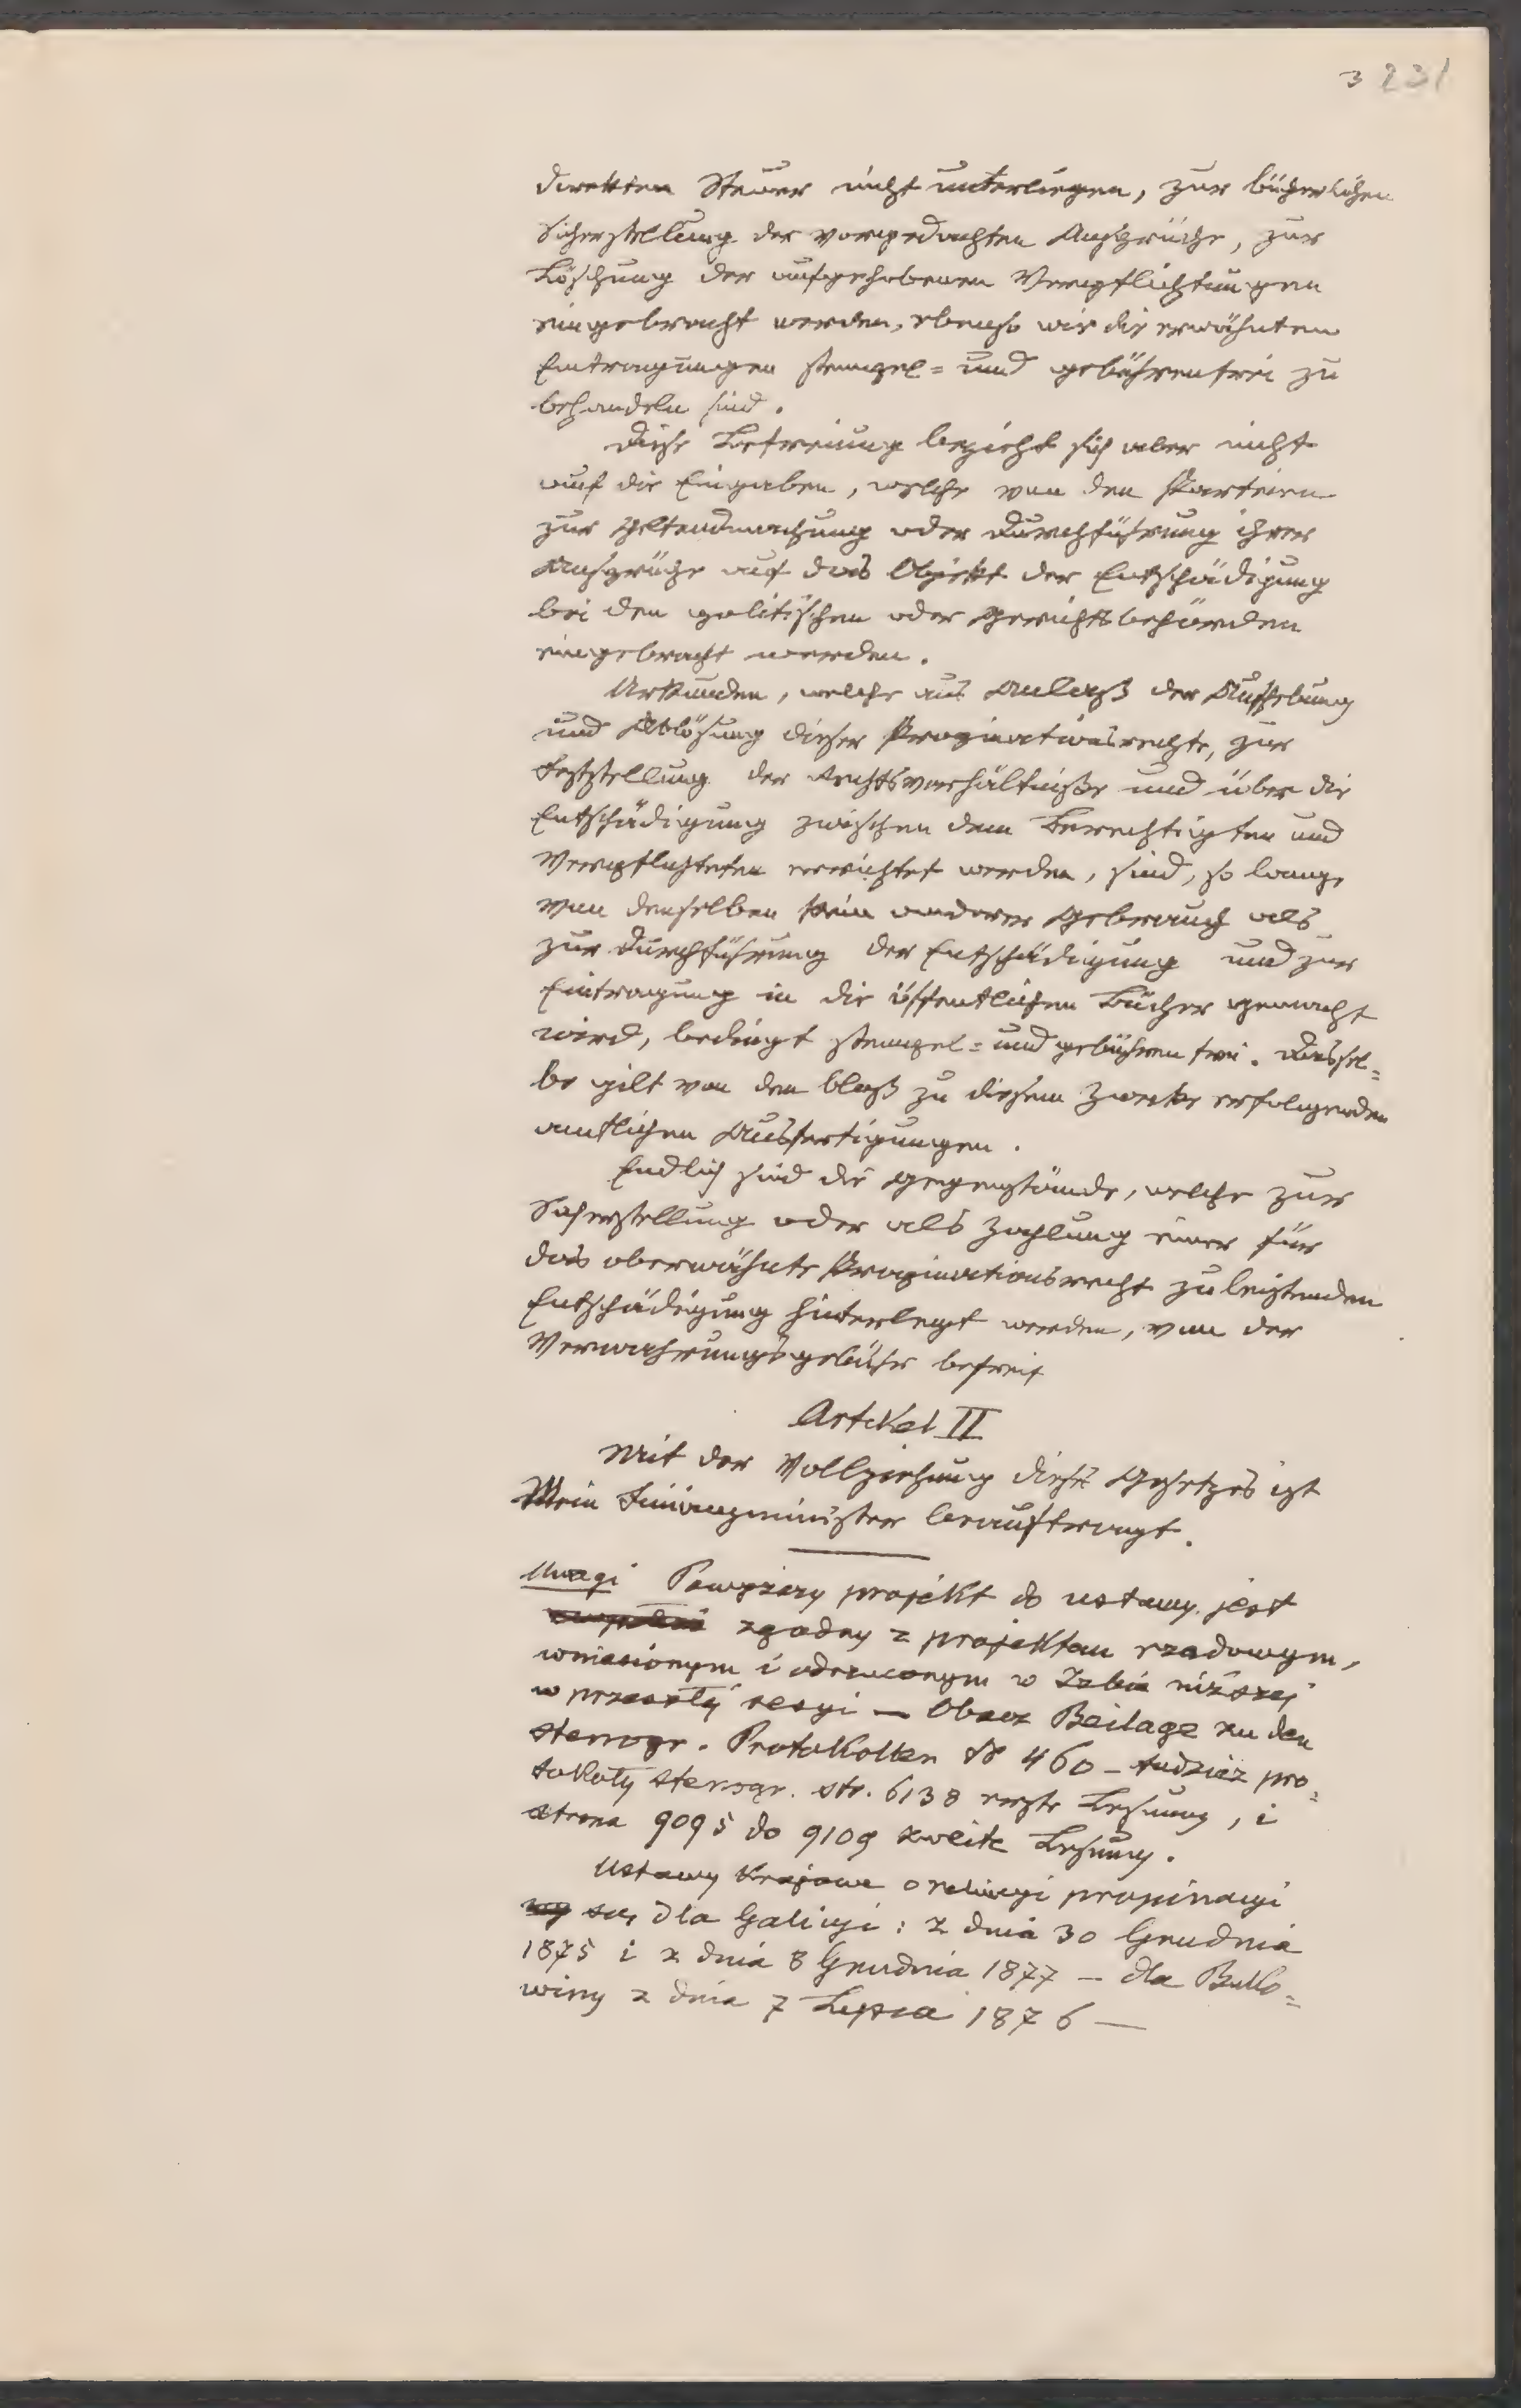 3 231
direkten Steuer nicht unterliegen, zur bücherlichen
Sicherstellung der vorgedachten Ansprüche, zur
Löschung der aufgehobenen Verpflichtungen
eingebracht werden, ebenso wie die erwähnten
Eintragungen stempel= und gebührenfrei zu
behandeln sind.
Diese Befreiung bezieht sich aber nicht
auf die Eingaben, welche von den Parteien
zur Geltendmachung oder Durchführung ihrer
Ansprüche auf das Objekt der Entschädigung
bei den politischen oder Gerichtsbehörden
eingebracht werden.
Urkunden, welche aus Anlaß der Aufhebung
und Ablösung dieser Propinationsrechte, zur
Feststellung der Rechtsverhältniße und über die
Entschädigung zwischen dem Berechtigten und
Verpflichteten errichtet werden, sind, so lange
von denselben kein anderer Gebrauch als
zur Durchführung der Entschädigung und zur
Eintragung in die öffentlichen Bücher gemacht
wird, bedingt stempel= und gebührenfrei. Dassel=
be gilt von den bloß zu diesem Zwecke erfolgenden
amtlichen Ausfertigungen.
Endlich sind die Gegenstände, welche zur
Sicherstellung oder als Zahlung einer für
das oberwähnte Propinationsrecht zu leistenden
Entschädigung hinterlegt werden, von der
Verwahrungsgebühr befreit
Artikel II
Mit der Vollziehung dieses Gesetzes ist
Mein Finanzminister beauftragt.
Uwagi Powyższy projekt do ustawy jest
zgodny z projektem rządowym,
wniesionym i odrzuconym w Izbie niższej
w przeszłej sesyi — Obacz Beilage zu den
stenogr. Protokollen № 460 — tudzież pro=
tokoły stenogr. str. 6138 erste Lesung, i
strona 9095 do 9109 zweite Lesung.
Ustawy krajowe o relucyi propinacyi
są dla Galicyi: z dnia 30 Grudnia
1875 i z dnia 8 Grudnia 1877 — dla Buko=
winy z dnia 7 Lipca 1876 —